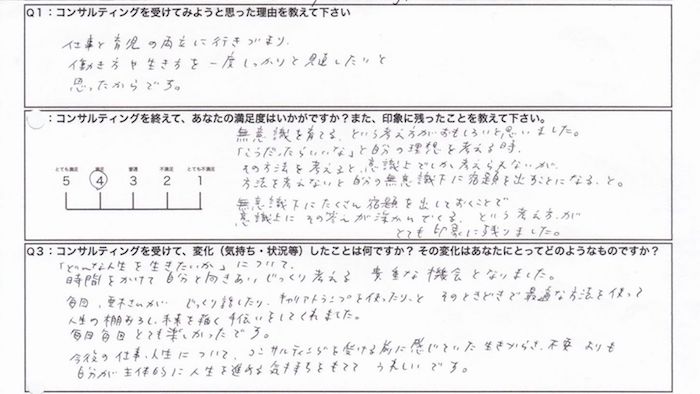 Q1：コンサルティングを受けてみようと思った理由を教えて下さい
仕事と育児の両立に行きづまり、
働き方や生き方を一度しっかりと見直したいと
思ったからです。
：コンサルティングを終えて、あなたの満足度はいかがですか？また、印象に残ったことを教えて下さい。
とても満足 満足 普通 不満足 とても不満
5 4 3 2 1
無意識を育てる、という考え方がおもしろいと思いました。
「こうだったらいいな」と自分の理想を考える時、
その方法を考えると、意識上でしか考えられないが、
方法を考えないと自分の無意識下に宿題を出すことになる、と。
無意識下にたくさん宿題を出しておくことで
意識上にその答えが浮かんでくる、という考え方が
とても印象に残りました。
Q3：コンサルティングを受けて、変化（気持ち・状況等）したことは何ですか？ その変化はあなたにとってどのようなものですか？
「どんな人生を生きたいか」について、
時間をかけて自分と向きあい、じっくり考える 貴重な機会となりました。
毎回、さんが じっくり話したり、トランプを使ったりと そのときどきで最適な方法を使って
人生の棚おろし、未来を描く手伝いをしてくれました。
毎回毎回とても楽しかったです。
今後の仕事、人生について、コンサルティングを受ける前に感じていた生きづらさ、不安 よりも
自分が主体的に人生を進める気持ちをもてて うれしいです。